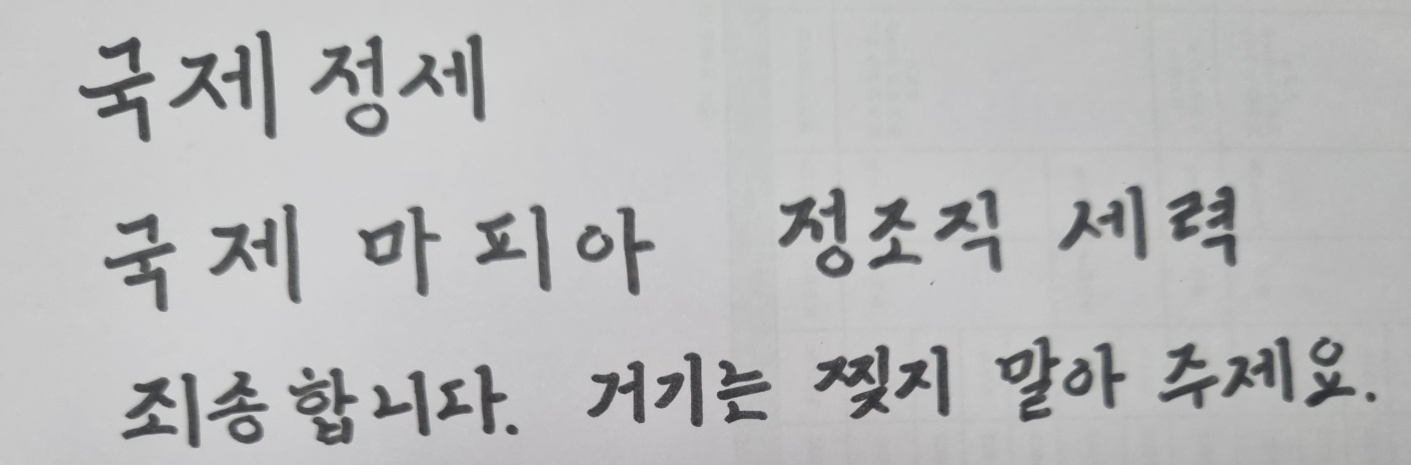 국제 정세
국제 마피아 정조직 세력
죄송합니다. 거기는 찢지 말아 주제요.